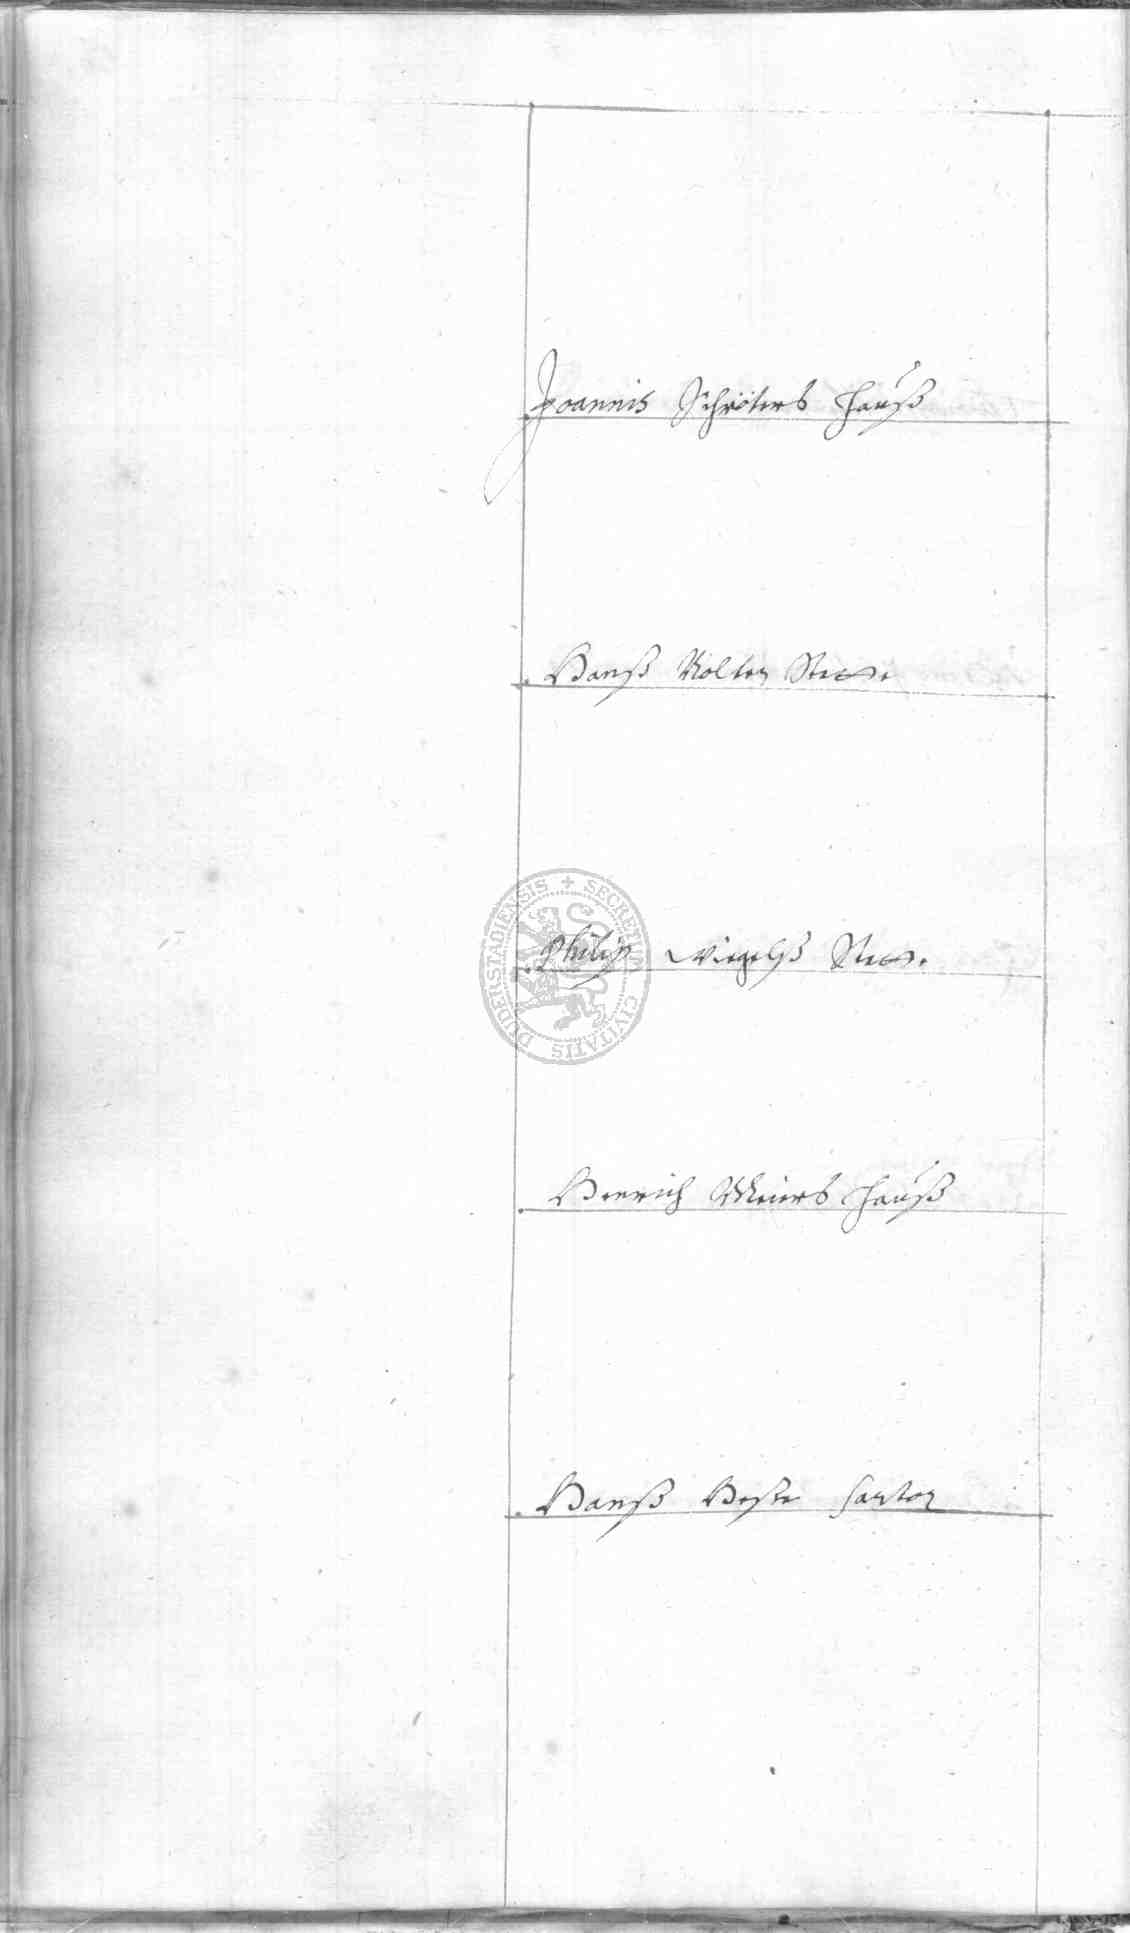 Joannis Schröters Hauß
Hanß Nolten Stette
Philip Wiegelß Stette
Henrich Meiers Hauß
Hanß Beste Sartor
SECRETUM CIVITATIS DUDERSTADIENSIS